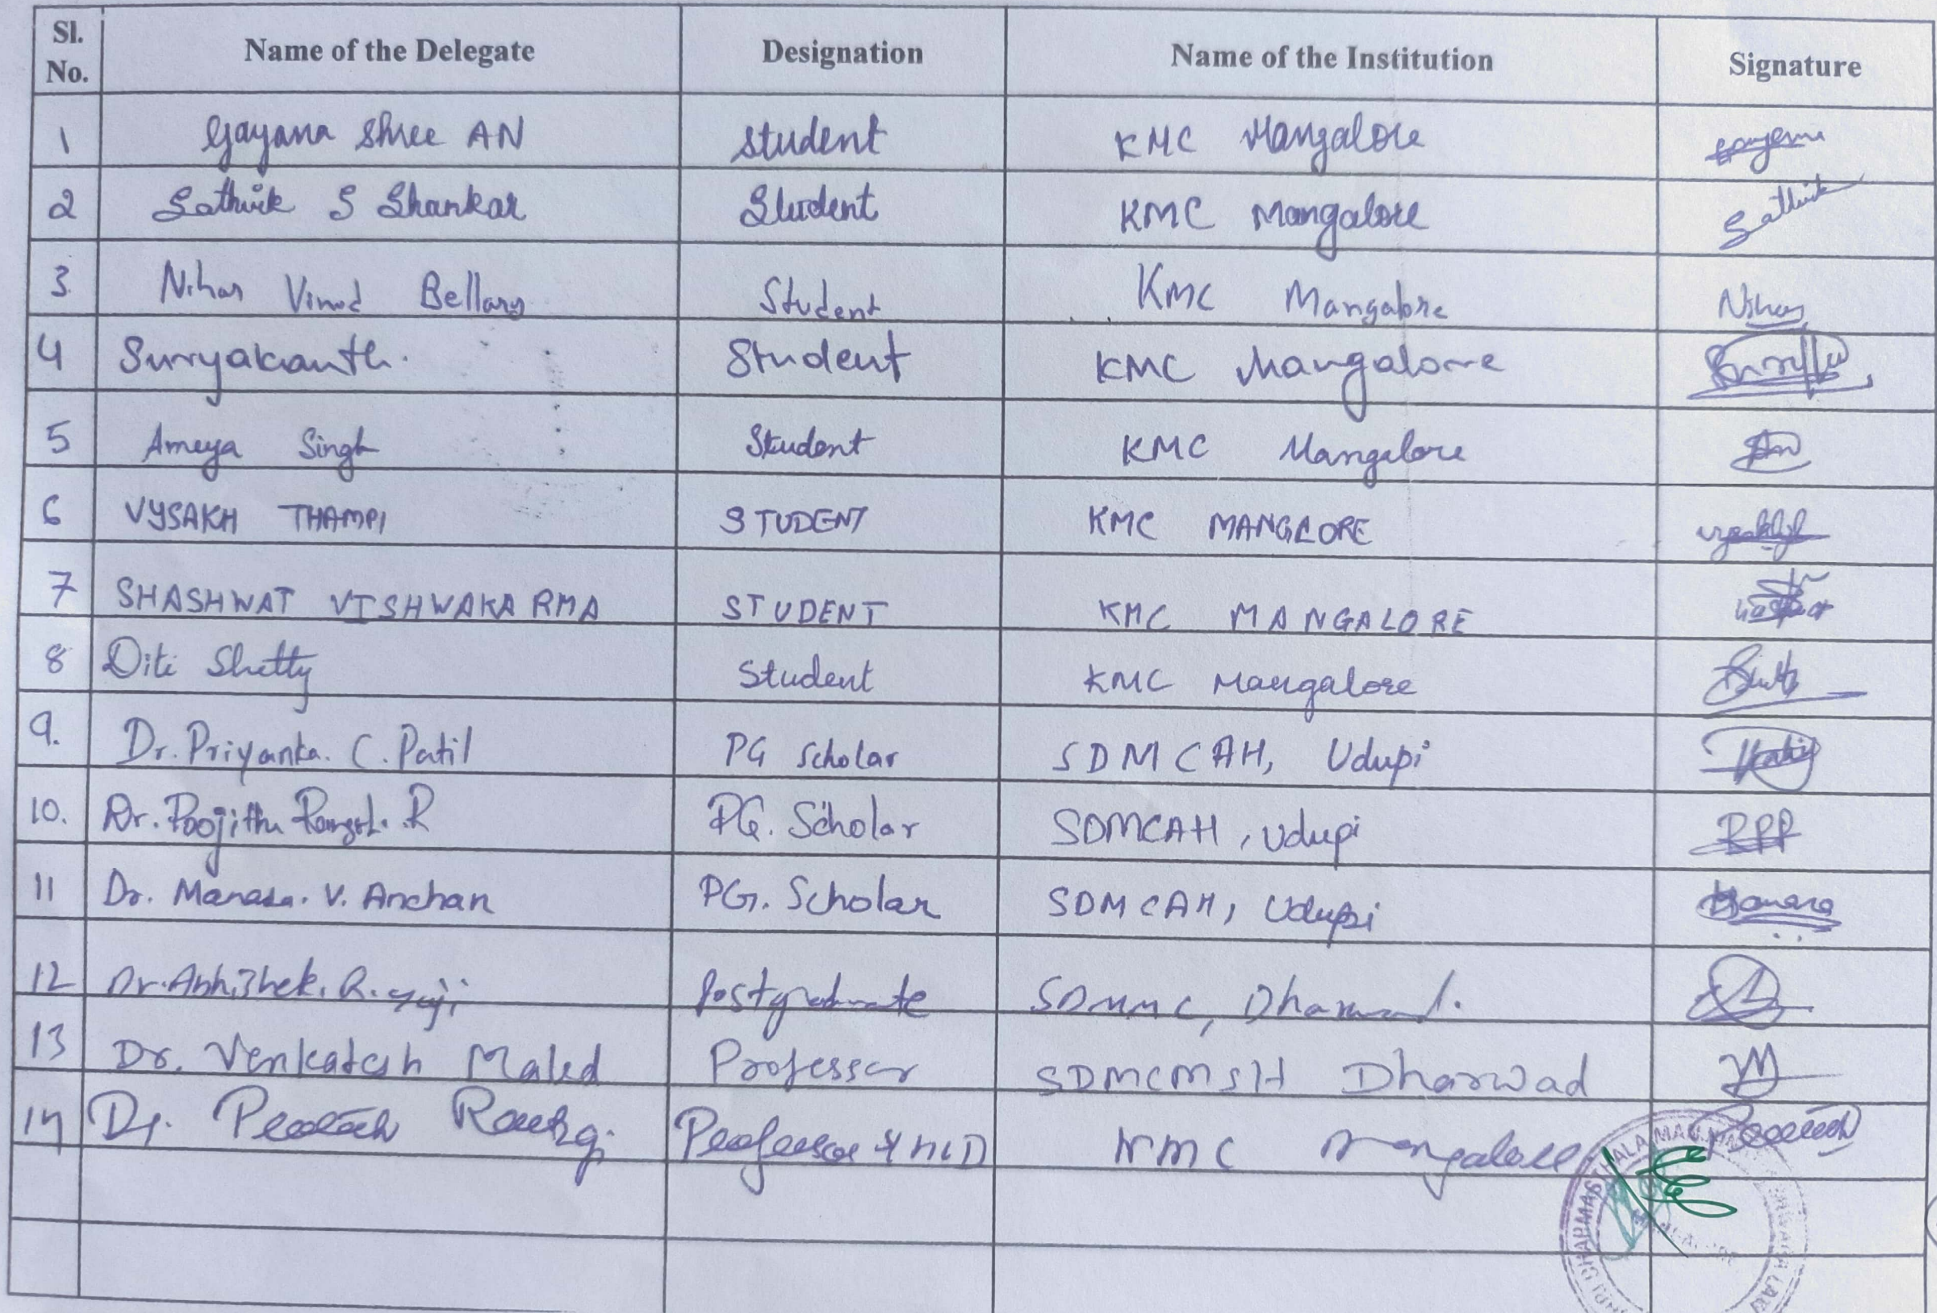 Sl. No. Name of the Delegate Designation Name of the Institution Signature
1 Gayana Shree AN Student KMC Mangalore
2 Sathvik S Shankar Student KMC Mangalore Sathvik
3. Nihar Vinod Bellary Student KMC Mangalore Nihar
4 Suryakanth. Student KMC Mangalore
5 Ameya Singh Student KMC Mangalore
6 VYSAKH THAMPI STUDENT KMC MANGLORE
7 SHASHWAT VISHWAKARMA STUDENT KMC MANGALORE
8 Diti Shetty Student KMC Mangalore
9. Dr. Priyanka. C. Patil PG Scholar SDMCAH, Udupi
10. Dr. Poojitha R PG. Scholar SDMCAH, Udupi RPP
11 Dr. Manasa. V. Anchan PG. Scholar SDMCAH, Udupi Manasa
12 Dr. Abhishek. R. Postgraduate SDMMC, Dharwad.
13 Dr. Venkatesh Maled Professor SDMCMSH Dharwad
14 Dr. Professor & HOD KMC Mangalore
DHARMASTHALA MAN